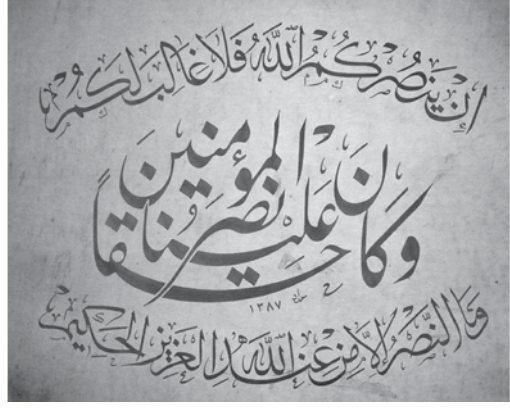 إِن يَنصُرْكُمُ اللَّهُ فَلَا غَالِبَ لَكُمْ
وَكَانَ حَقًّا عَلَيْنَا نَصْرُ الْمُؤْمِنِينَ
١٣٨٧
وَمَا النَّصْرُ إِلَّا مِنْ عِندِ اللَّهِ الْعَزِيزِ الْحَكِيمِ